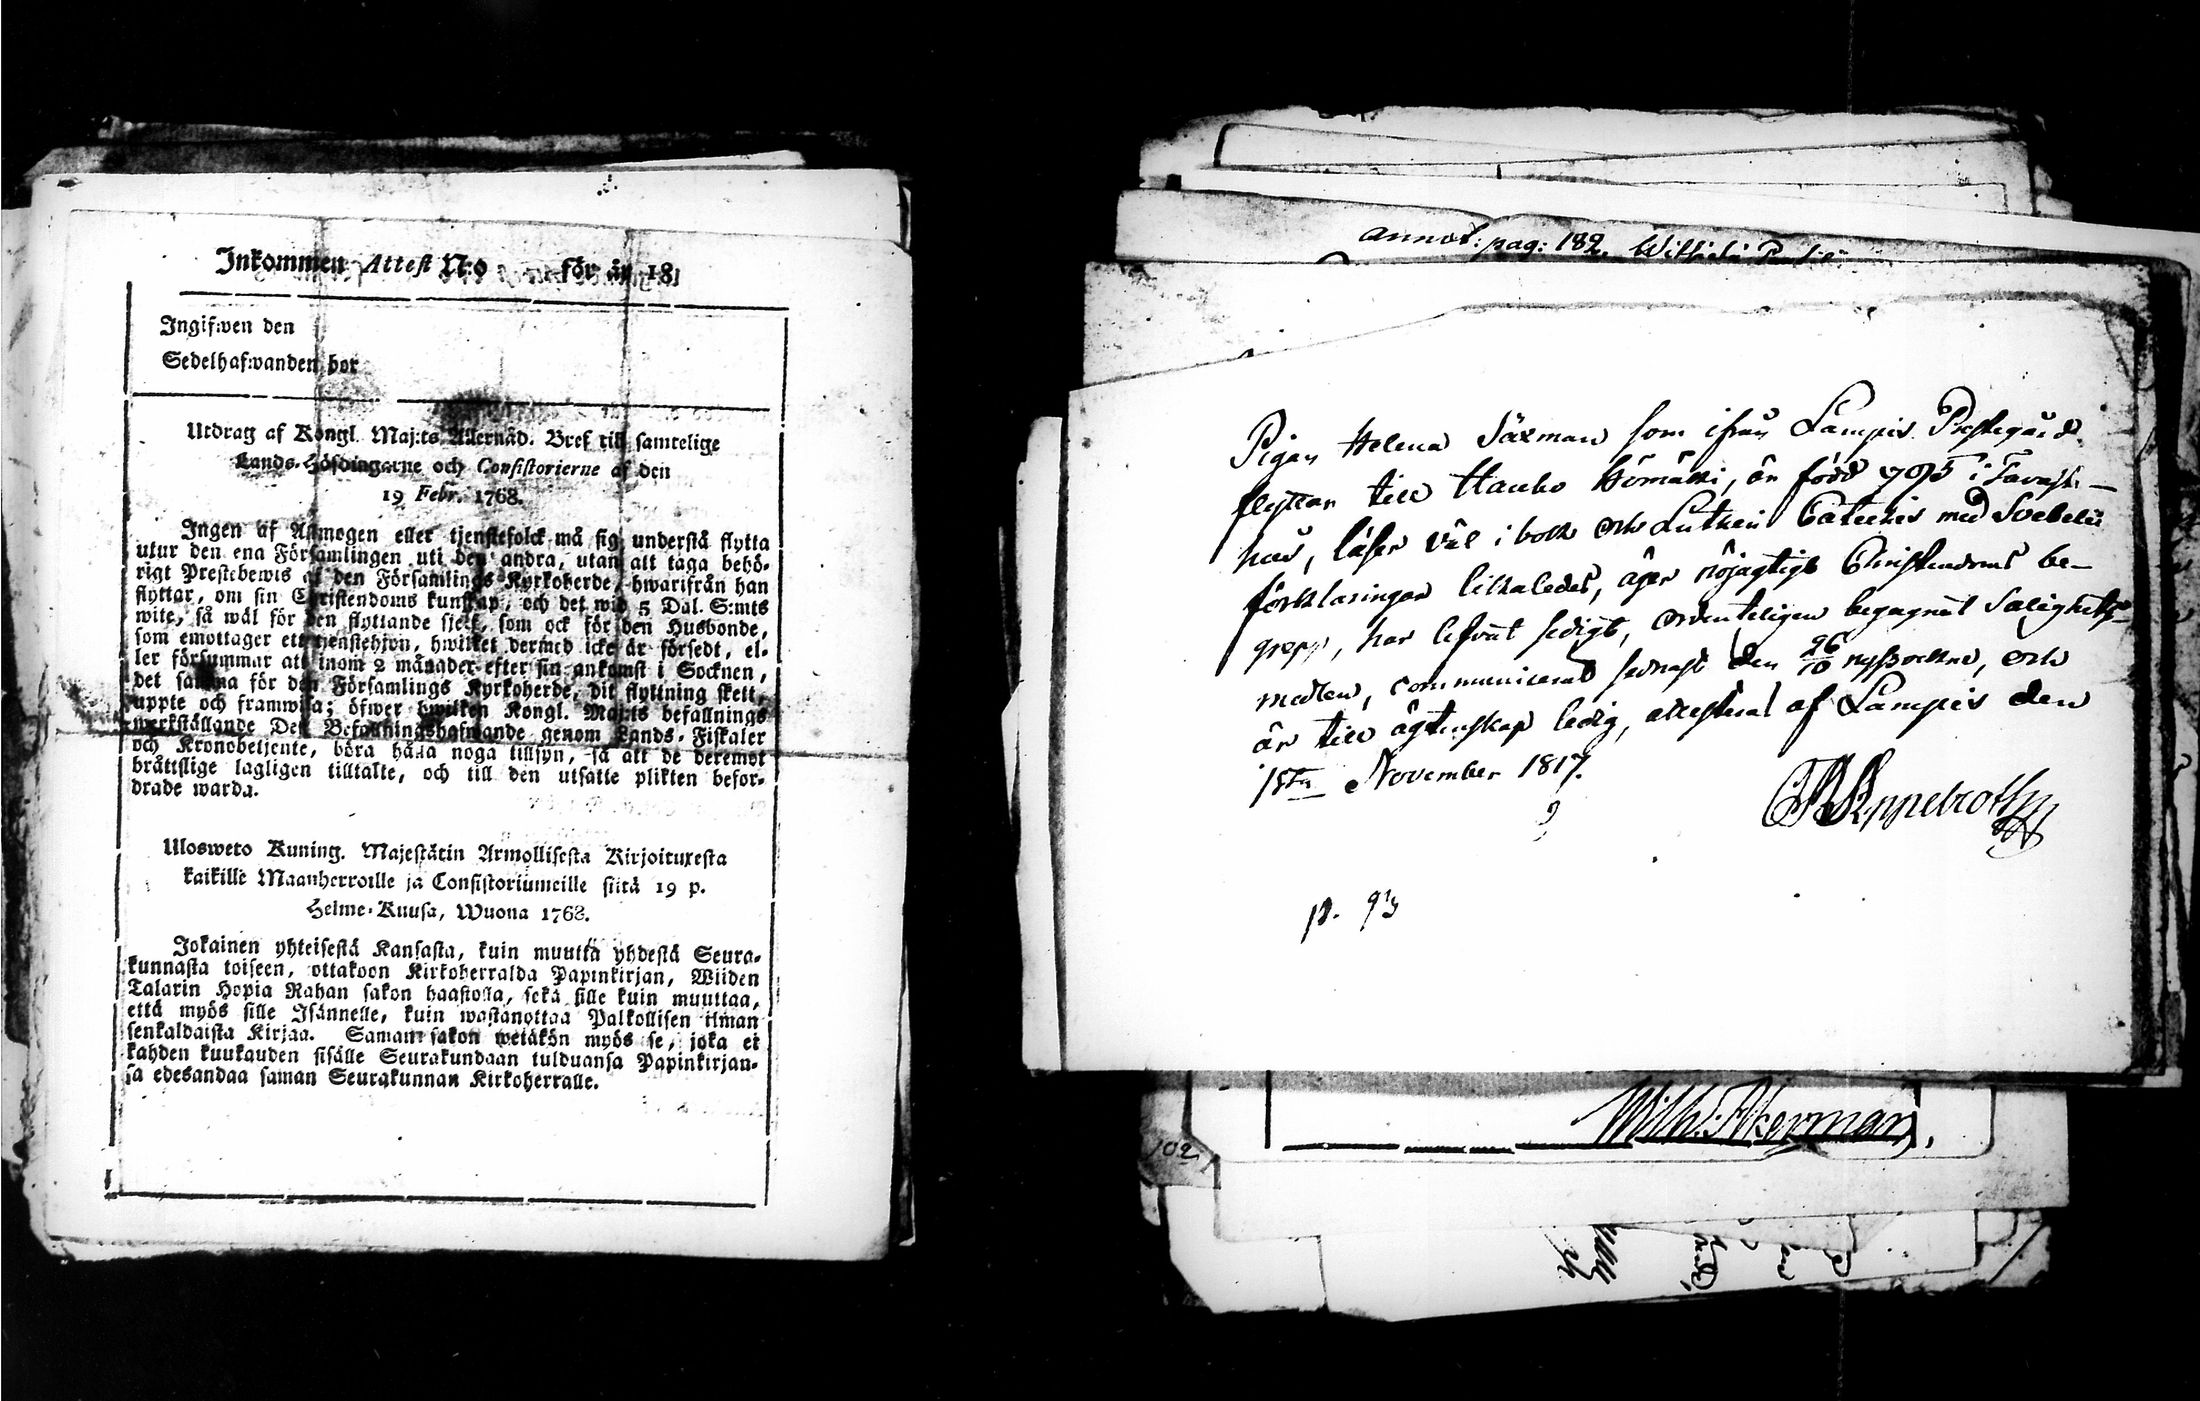 Inkommen Attest N:o för år 181
Ingifwen den
Sedelhafwanden bor
Utdrag af Kongl. Maj:ts Allernåd. Bref till samtelige
Lands-Höfdingarne och Consistorierne af den
19 Febr. 1768.
Ingen af Allmogen eller tjenstefolck må sig understå flytta
utur den ena Församlingen uti den andra, utan att taga behö-
rigt Prestebewis af den Församlings Kyrkoherde, hwarifrån han
flyttar, om sin Christendoms kunskap, och det wid 5 Dal. S:mts
wite, så wäl för den flyttande sjelf, som ock för den Husbonde,
som emottager ett tjenstehjon, hwilket dermed icke är försedt, el-
ler försummar att inom 2 månader efter sin ankomst i Socknen,
det samma för den Församlings Kyrkoherde, dit flyttning skett,
uppte och framwisa; öfwer hwilken Kongl. Maj:ts befallnings
werkställande Des Befallningshafwande genom Lands-Fiskaler
och Kronobetjente, böra hålla noga tillsyn, så att de deremot
bråttslige lagligen tilltalte, och till den utsatte plikten befor-
drade warda.
Ulosweto Kuning. Majestätin Armollisesta Kirjoituxesta
kaikille Maanherroille ja Consistoriumeille siitä 19 p.
Helme-Kuusa, Wuona 1768.
Jokainen yhteisestä Kansasta, kuin muutta yhdestä Seura-
kunnasta toiseen, ottakoon Kirkoherralda Papinkirjan, Wiiden
Talarin Hopia Rahan sakon haastolla, sekä sille kuin muuttaa,
että myös sille Isännelle, kuin wastanottaa Palkollisen ilman
senkaldaista Kirjaa. Saman sakon wetäkön myös se, joka ei
kahden kuukauden sisälle Seurakundaan tulduansa Papinkirjan-
sa edesandaa saman Seurakunnan Kirkoherralle.
annot: pag: 182.
Pigan Helena Säxman som ifrån Lampis Prestegård
flyttar till Hauho Hömäki, är född 1795 i Tavast-
hus, läser väl i bok och Lutheri Cateches med Svebelii
förklaringar likaledes, äger nöjagtigt Christendoms be-
grepp, har lefvat sedigt, ordenteligen begagnat Salighets-
medlen, communicerat sednast den 26/10 nyssvekne, och
är till ägtenskap ledig, attesterat af Lampis den
15de November 1817.
p. 93
Wilh: Åkerman,
102